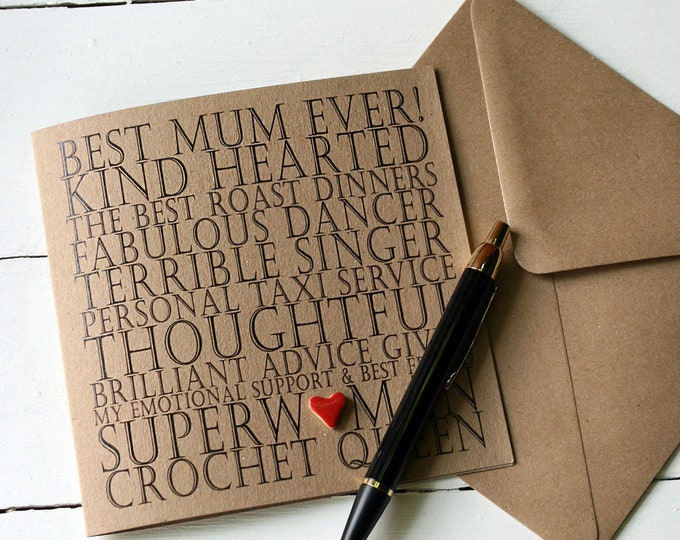 BEST MUM EVER!
KIND HEARTED
THE BEST ROAST DINNERS
FABULOUS DANCER
TERRIBLE SINGER
PERSONAL TAXI SERVICE
THOUGHTFUL
BRILLIANT ADVICE GIVER
MY EMOTIONAL SUPPORT & BEST
SUPERW❤MAN
CROCHET QUEEN